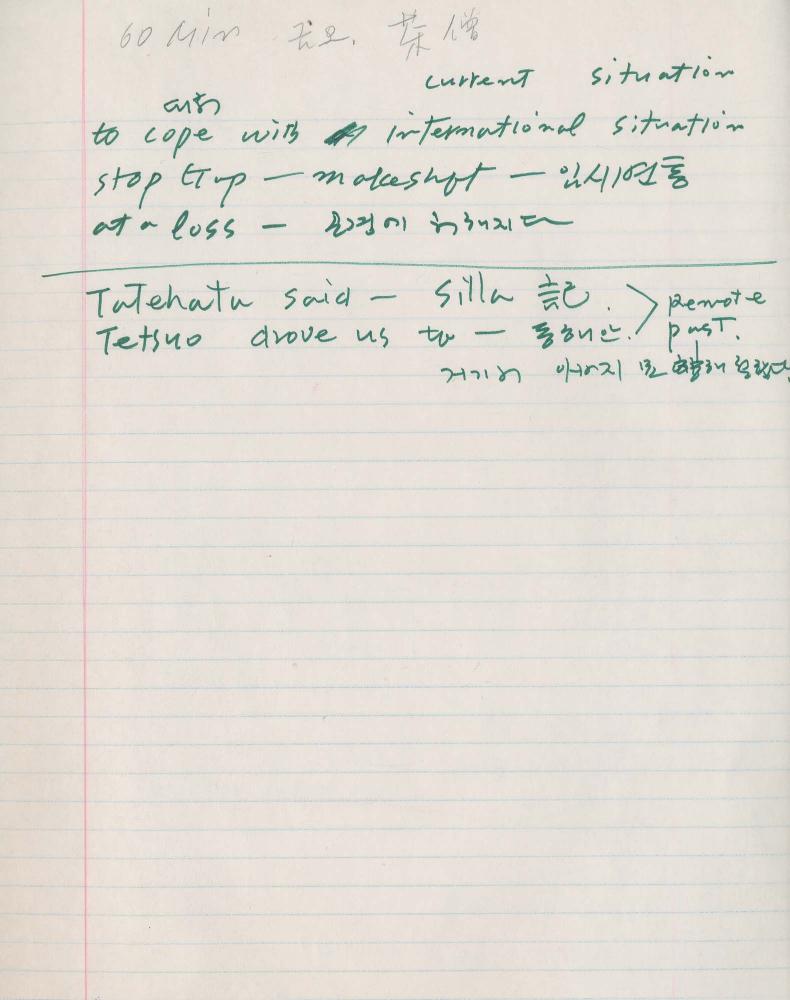 60 Min 금요.
current situation
to cope with international situation
stop gap — makeshift — 임시변통
at a loss — 곤경에 처해지다
Tatehata said — Silla 記.
Tetsuo drove us to — 동해안.
remote
past.
거기서